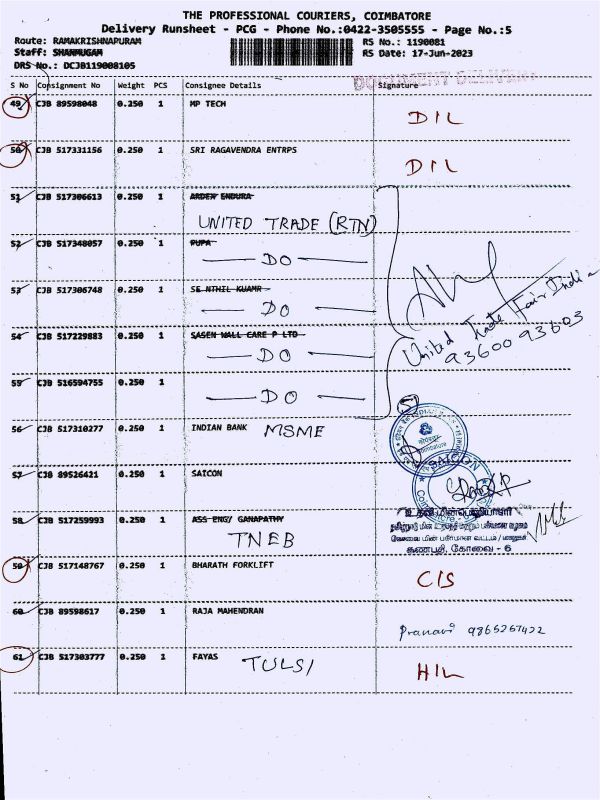 THE PROFESSIONAL COURIERS, COIMBATORE
Delivery Runsheet - PCG - Phone No.:0422-3505555 - Page No.:5
Route: RAMAKRISHNAPURAM RS No.: 1190081
Staff: SHANMUGAM RS Date: 17-Jun-2023
DRS No.: DCJB119008105
DOCUMENT DELIVERY
S No Consignment No Weight PCS Consignee Details Signature
49 CJB 89598048 0.250 1 MP TECH DIL
50 CJB 517331156 0.250 1 SRI RAGAVENDRA ENTRPS DIL
51 CJB 517306613 0.250 1 ARDEN ENDURA
UNITED TRADE (RTN)
52 CJB 517348057 0.250 1 PUPA
DO
53 CJB 517306748 0.250 1 SE NTHIL KUAMR
DO
United Trade Fair India
93600 93603
54 CJB 517229883 0.250 1 SASEN WALL CARE P LTD
DO
55 CJB 516594755 0.250 1
DO
56 CJB 517310277 0.250 1 INDIAN BANK MSME
57 CJB 89526421 0.250 1 SAICON
SAICON
58 CJB 517259993 0.250 1 ASS ENG/ GANAPATHY
TNEB
உதவி மின் பொறியாளர்
கணபதி, கோவை - 6
59 CJB 517148767 0.250 1 BHARATH FORKLIFT C/S
60 CJB 89598617 0.250 1 RAJA MAHENDRAN
61 CJB 517303777 0.250 1 FAYAS TULSI HIL